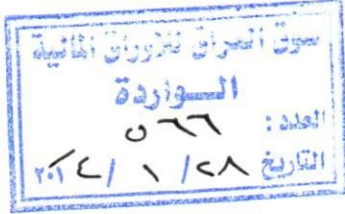 سوق العراق للاوراق المالية
الـــواردة
العدد : ٥٦٦
التاريخ ٢٨ / ١ / ٢٠٢٤